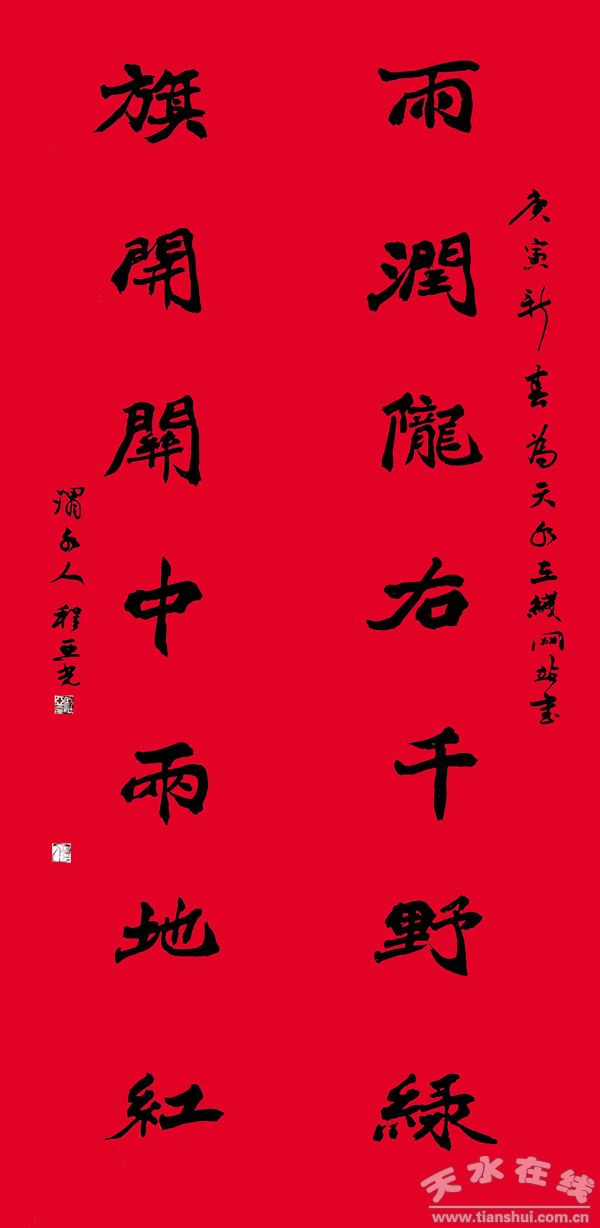 庚寅新春為天水在綫网站书
雨潤隴右千野緑
旗開関中兩地紅
渭水人程亚光
天水在线
www.tianshui.com.cn